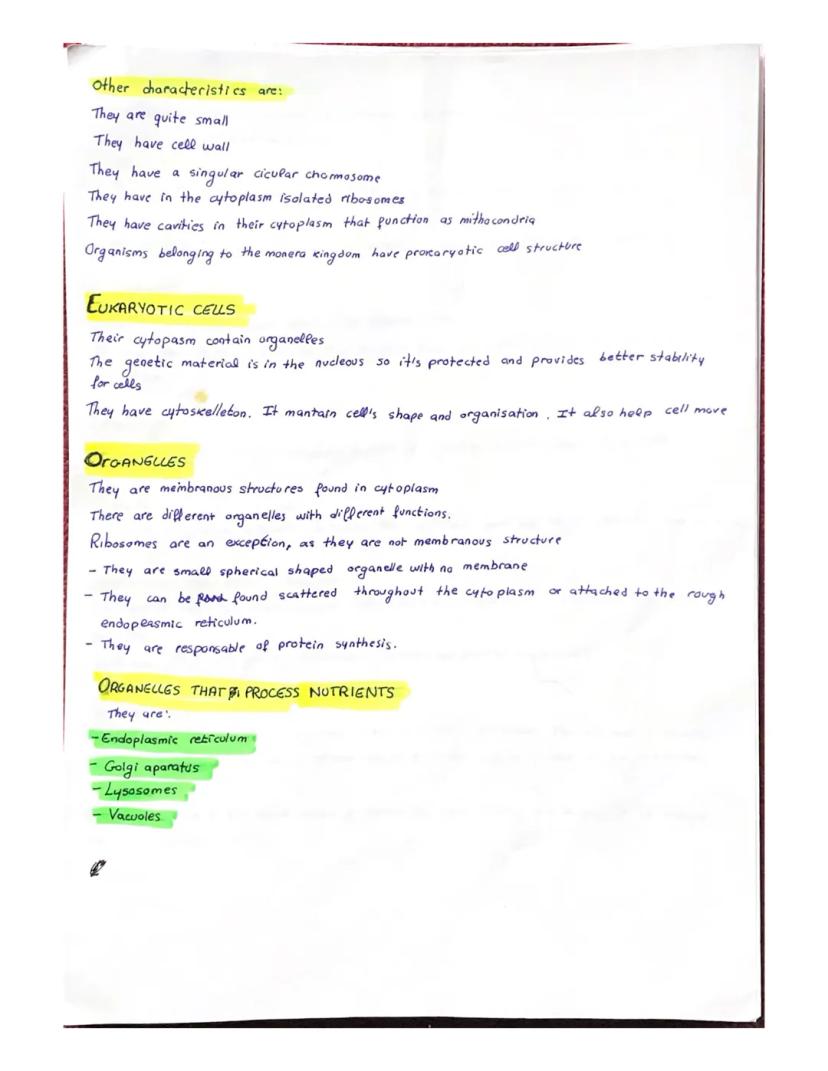 Other characteristics are:
They are quite small
They have cell wall
They have a singular cicular chormosome
They have in the cytoplasm isolated ribosomes
They have cavities in their cytoplasm that function as mithocondria
Organisms belonging to the monera kingdom have procaryotic cell structure
EUKARYOTIC CELLS
Their cytopasm contain organelles
The genetic material is in the nucleous so it's protected and provides better stability
for cells
They have cytoskelleton. It mantain cell's shape and organisation. It also help cell move
ORGANELLES
They are membranous structures found in cytoplasm
There are different organelles with different functions.
Ribosomes are an exception, as they are not membranous structure
- They are small spherical shaped organelle with no membrane
- They can be found scattered throughout the cytoplasm or attached to the rough
endoplasmic reticulum.
- They are responsable of protein synthesis.
ORGANELLES THAT PROCESS NUTRIENTS
They are:
- Endoplasmic reticulum
- Golgi aparatus
- Lysosomes
- Vacuoles